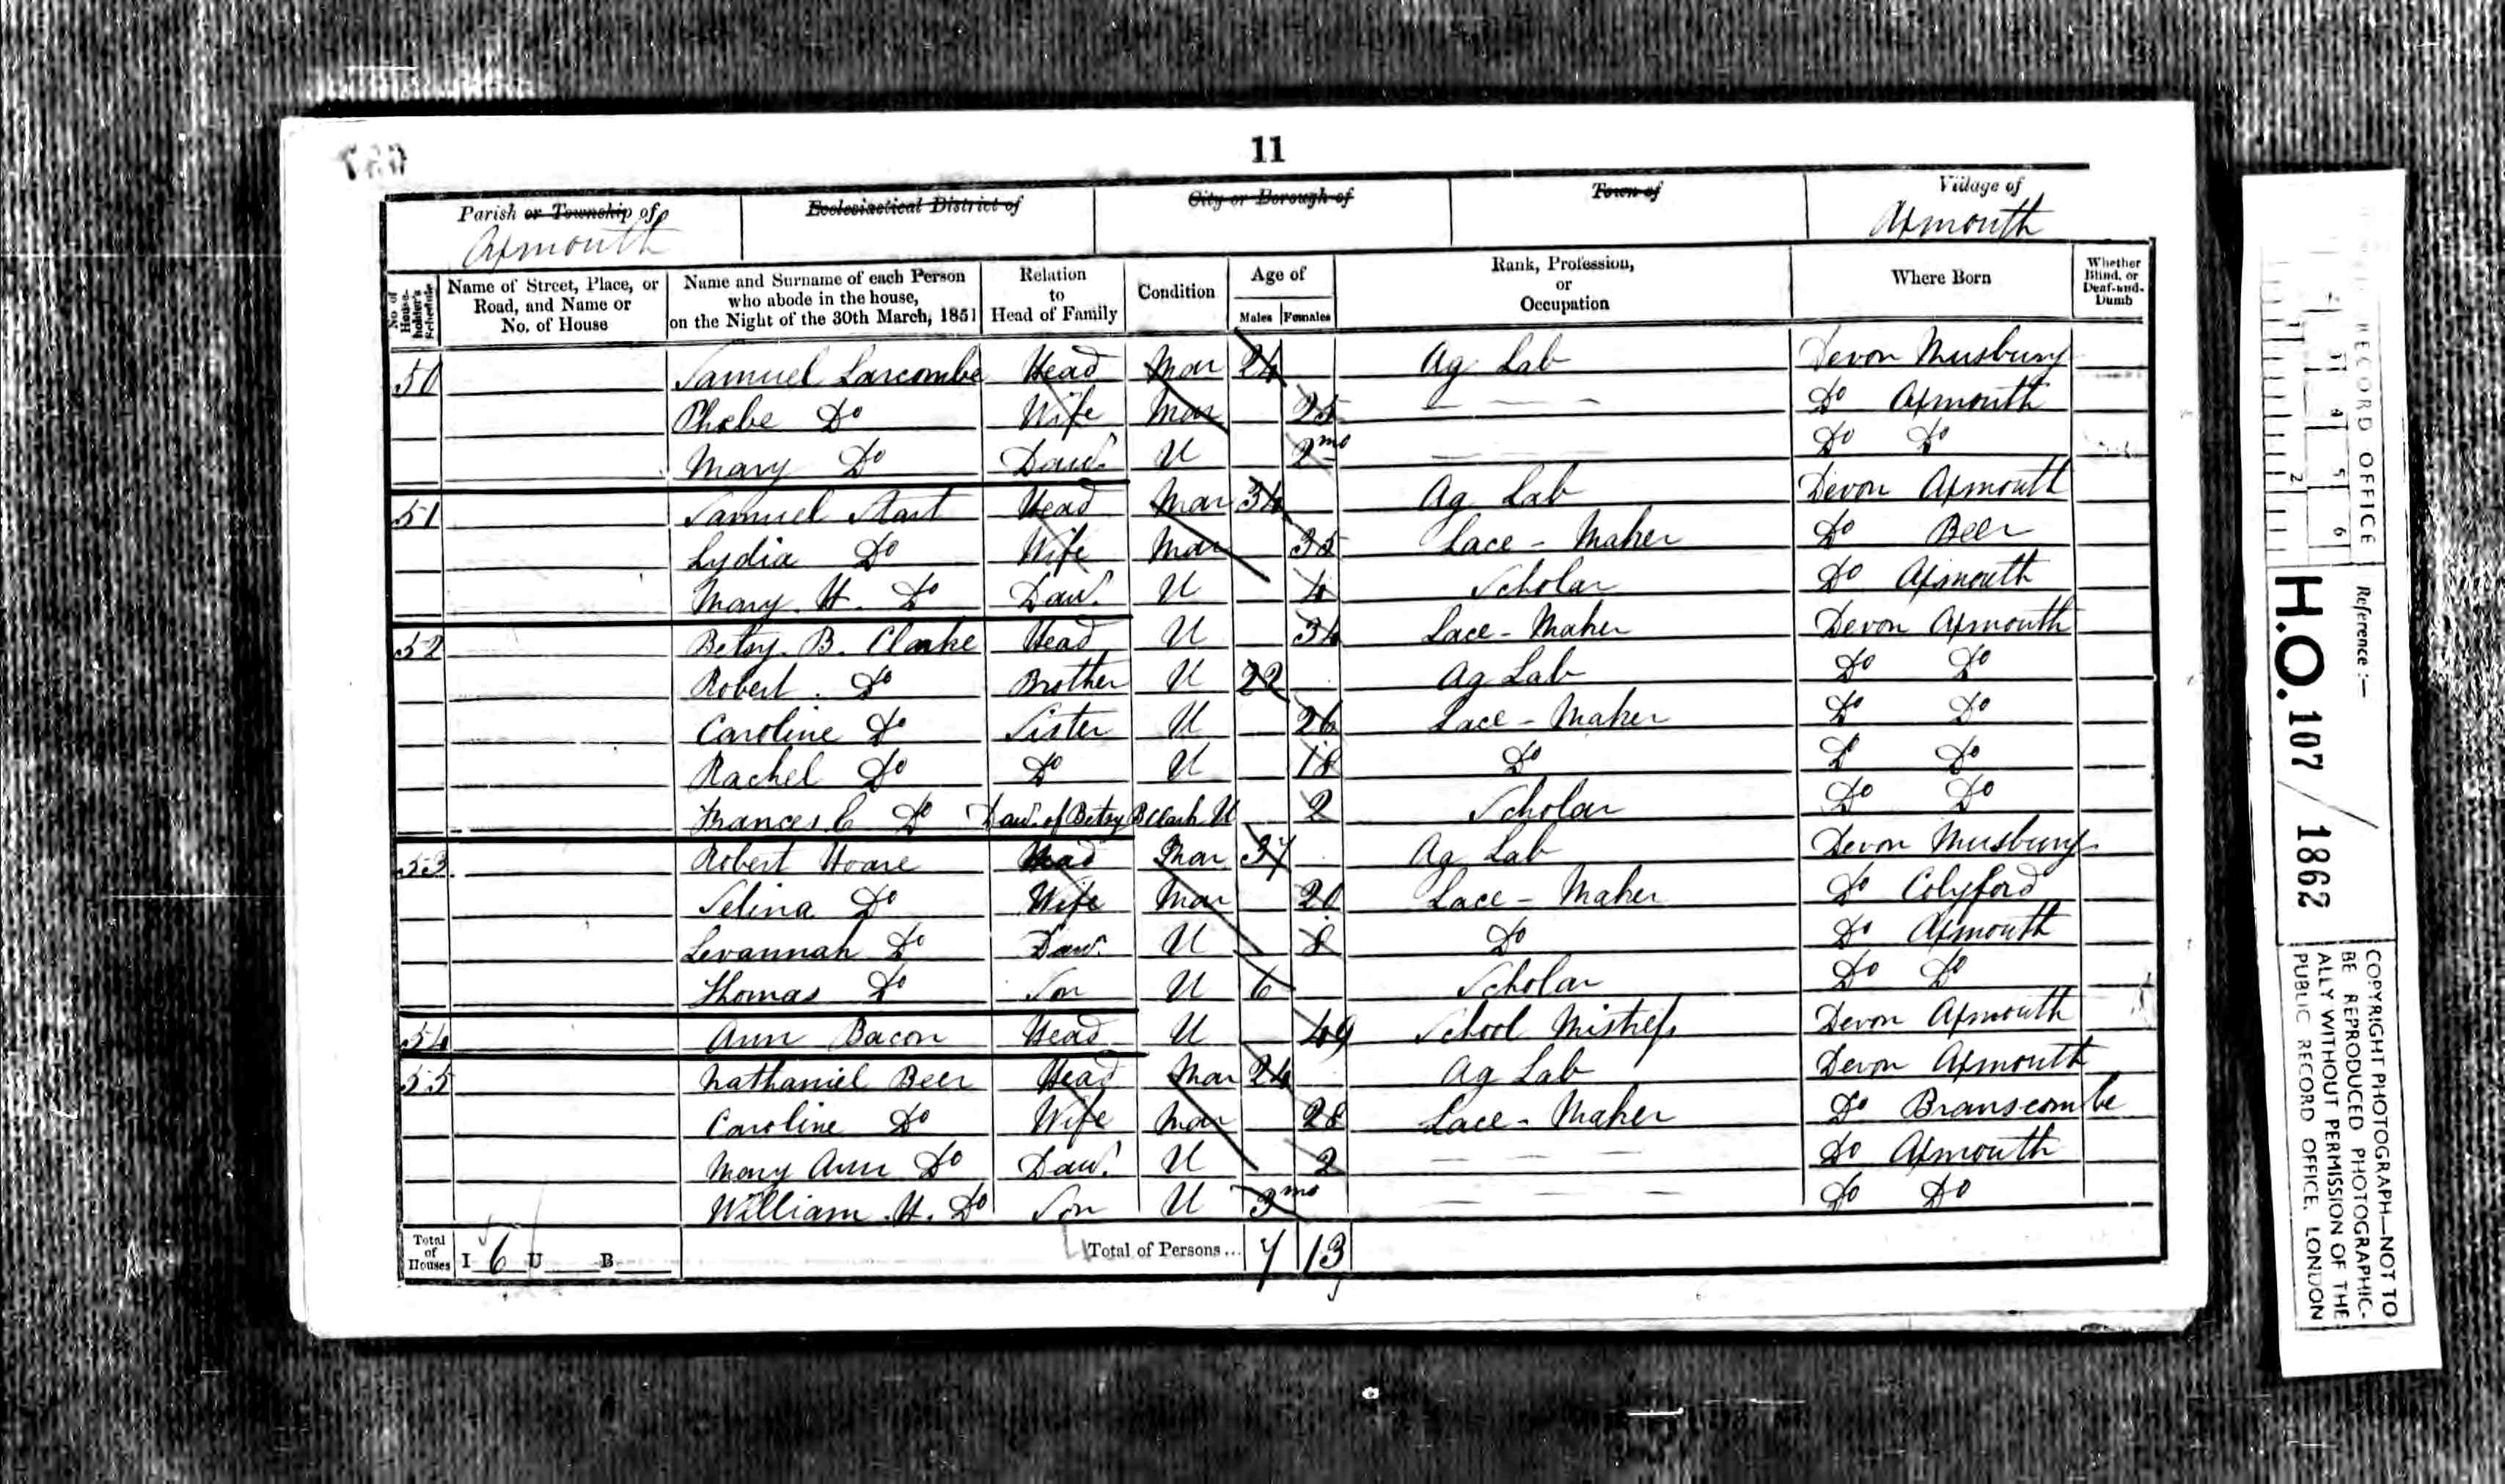 11
Parish or Township of Ecclesiastical District of City or Borough of Town of Village of
Axmouth Axmouth
No of House-holder's Schedule Name of Street, Place, or Road, and Name or No. of House Name and Surname of each Person who abode in the house, on the Night of the 30th March, 1851 Relation to Head of Family Condition Age of Males Females Rank, Profession, or Occupation Where Born Whether Blind, or Deaf-and-Dumb
50 Samuel Larcombe Head Mar 24 Ag Lab Devon Musbury
Phebe Do Wife Mar 25 Do Axmouth
Mary Do Daur. U 2mo Do Do
51 Samuel Start Head Mar 34 Ag Lab Devon Axmouth
Lydia Do Wife Mar 35 Lace-Maker Do Beer
Mary H. Do Daur. U 4 Scholar Do Axmouth
52 Betsy B. Clarke Head U 34 Lace-Maker Devon Axmouth
Robert Do Brother U 22 Ag Lab Do Do
Caroline Do Sister U 26 Lace-Maker Do Do
Rachel Do Do U 18 Do Do Do
Frances E Do Daur. of Betsy B Clark U 2 Scholar Do Do
53 Robert Hoare Head Mar 37 Ag Lab Devon Musbury
Selina Do Wife Mar Lace-Maker Do Colyford
Levannah Do Daur. U 8 Do Do Axmouth
Thomas Do Son U 6 Scholar Do Do
54 Ann Bacon Head U 49 School Mistress Devon Axmouth
55 Nathaniel Beer Head Mar 24 Ag Lab Devon Axmouth
Caroline Do Wife Mar 28 Lace-Maker Do Branscombe
Mary Ann Do Daur. U 2 Do Axmouth
William H. Do Son U 3mo Do Do
Total of Houses I 6 U B Total of Persons... 7 13
RECORD OFFICE
Reference :-
H.O. 107 / 1862
COPYRIGHT PHOTOGRAPH—NOT TO
BE REPRODUCED PHOTOGRAPHIC-
ALLY WITHOUT PERMISSION OF THE
PUBLIC RECORD OFFICE, LONDON